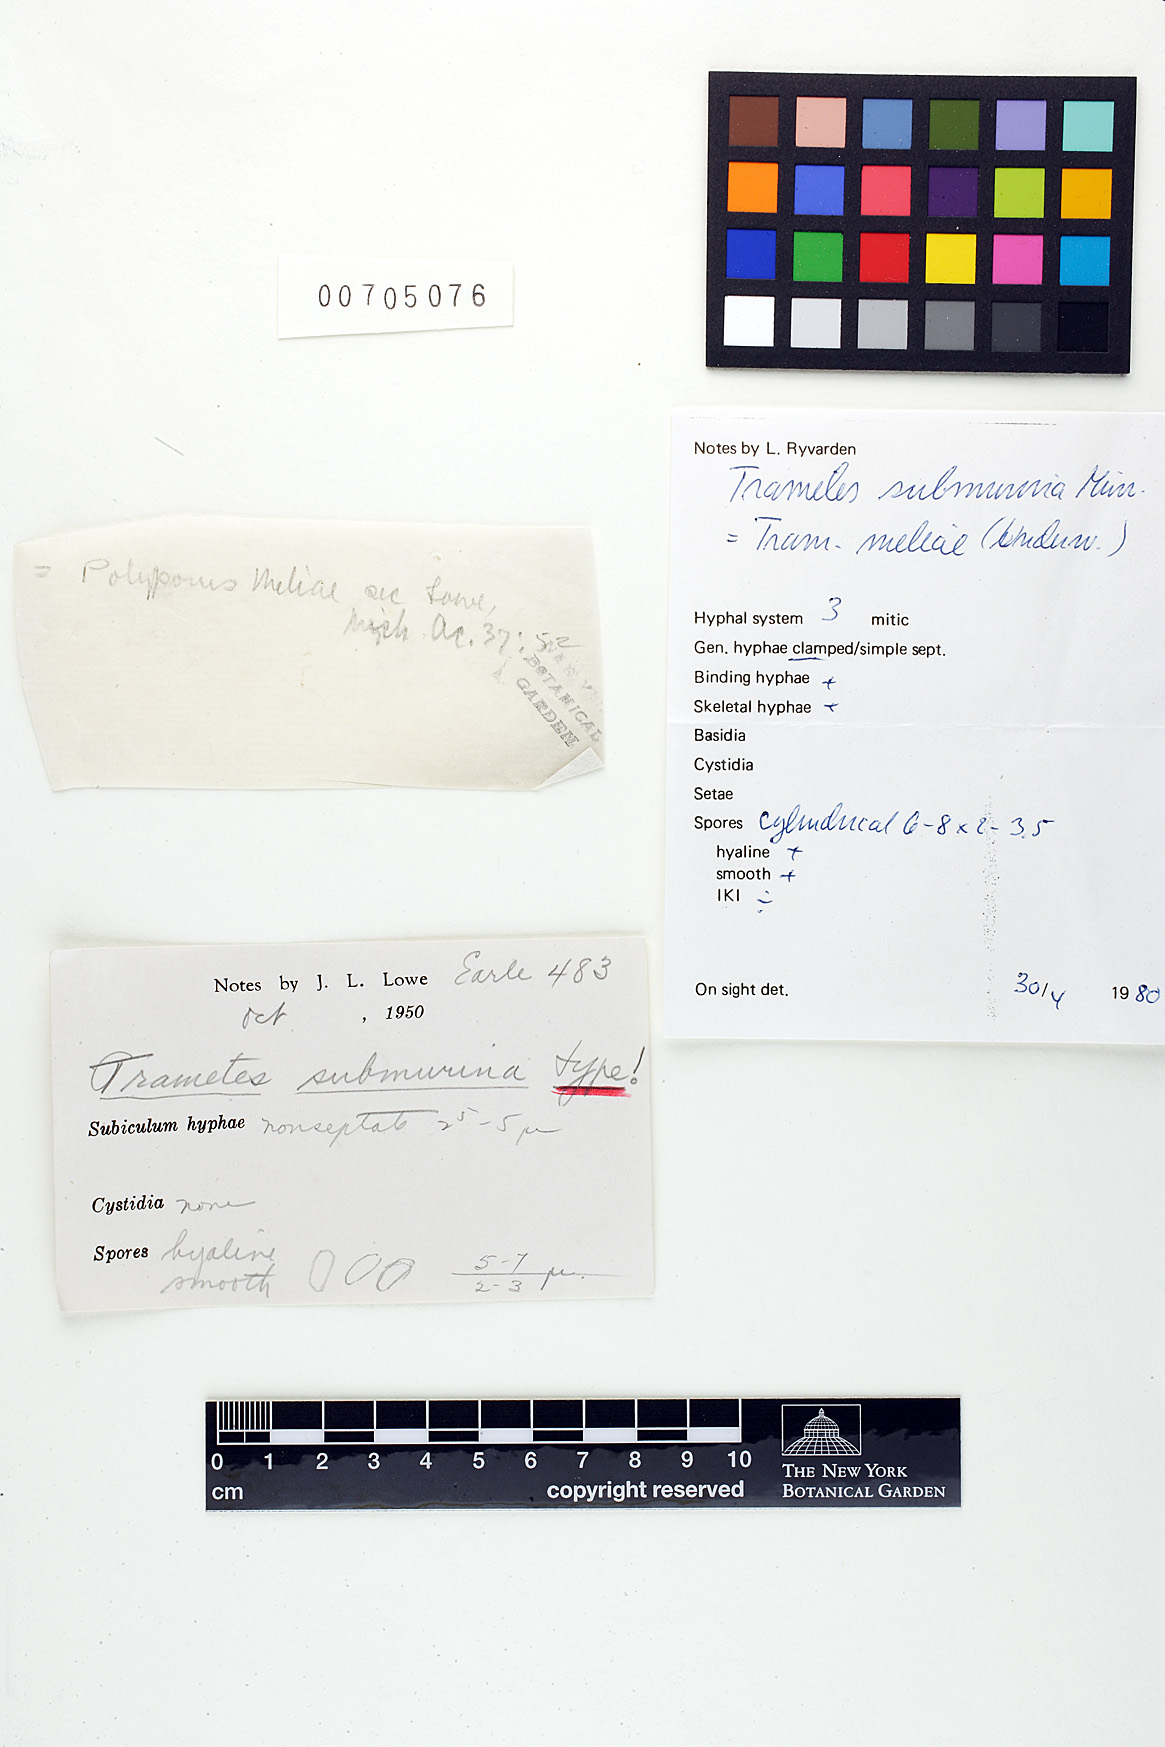 00705076
Notes by L. Ryvarden
Trametes submurina Murr.
= Tram. meliae (Underw.)
Hyphal system 3 mitic
Gen. hyphae clamped/simple sept.
Binding hyphae +
Skeletal hyphae +
Basidia
Cystidia
Setae
Spores Cylindrical 6-8 x 2-3.5
hyaline +
smooth +
IKI ÷
On sight det. 30/4 1980
= Polyporus Meliae sec Lowe,
Mich Ac. 37: 52
BOTANICAL
GARDEN
Notes by J. L. Lowe Earle 483
Oct , 1950
Trametes submurina type!
Subiculum hyphae nonseptate 2⁵-5 µ
Cystidia none
Spores hyaline
smooth 5-7
2-3 µ.
0 1 2 3 4 5 6 7 8 9 10
cm copyright reserved
THE NEW YORK
BOTANICAL GARDEN